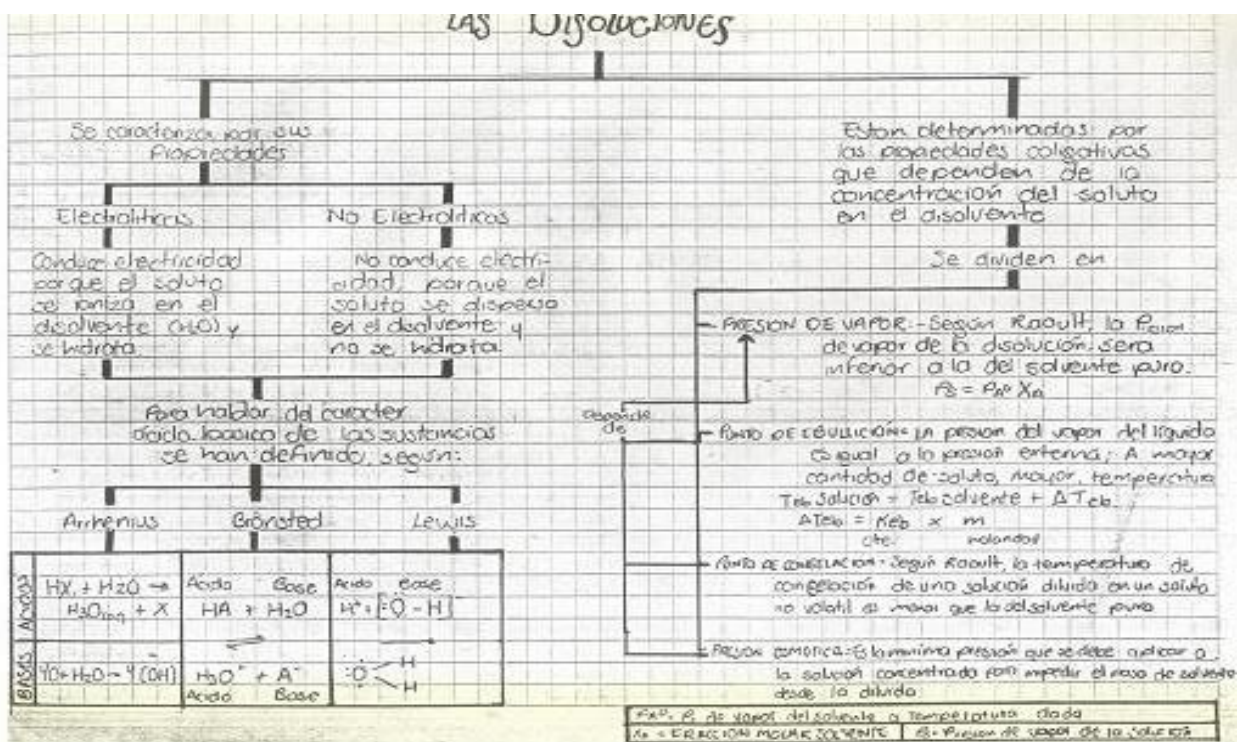 LAS DISOLUCIONES
Se caracteriza por sus
Propiedades
Electrolíticas
No Electrolíticas
Conduce electricidad
porque el soluto
se ioniza en el
disolvente (H2O) y
se hidrata.
No conduce eléctri-
cidad, porque el
soluto se dispersa
en el disolvente y
no se hidrata.
Para hablar del caracter
ácido basico de las sustancias
se han definido, según:
Arrhenius
Brönsted
Lewis
ACIDOS
HX + H2O →
H3O + X
Acido Base
HA + H2O
⇌
Acido Base
H+ + [:O - H]
→
BASES
YO + H2O → Y(OH)
H3O+ + A-
Acido Base
:O H
H
Estan determinadas por
las propiedades coligativas
que dependen de la
concentración del soluto
en el disolvente
Se dividen en
Depende
de
PRESION DE VAPOR:- Según Raoult, la
de vapor de la disolución sera
inferior a la del solvente puro.
PS = PA° XA
PUNTO DE EBULLICION: LA presion del vapor del líquido
es igual a la presion externa; A mayor
cantidad de soluto, mayor, temperatura
Teb solución = Teb solvente + ΔTeb
ΔTeb = Keb x m
cte.
PUNTO DE CONGELACION: Según Raoult, la temperatura de
congelación de una solución diluida en un soluto
no volatil es menor que la del solvente puro
PRESION OSMOTICA: Es la minima presion que se debe aplicar a
la solución concentrada para impedir el paso de solvente
desde la diluida.
PA°: P. de vapor del solvente a Temperatura dada
XA = FRACCION MOLAR SOLVENTE PS= Presion de vapor de la solución